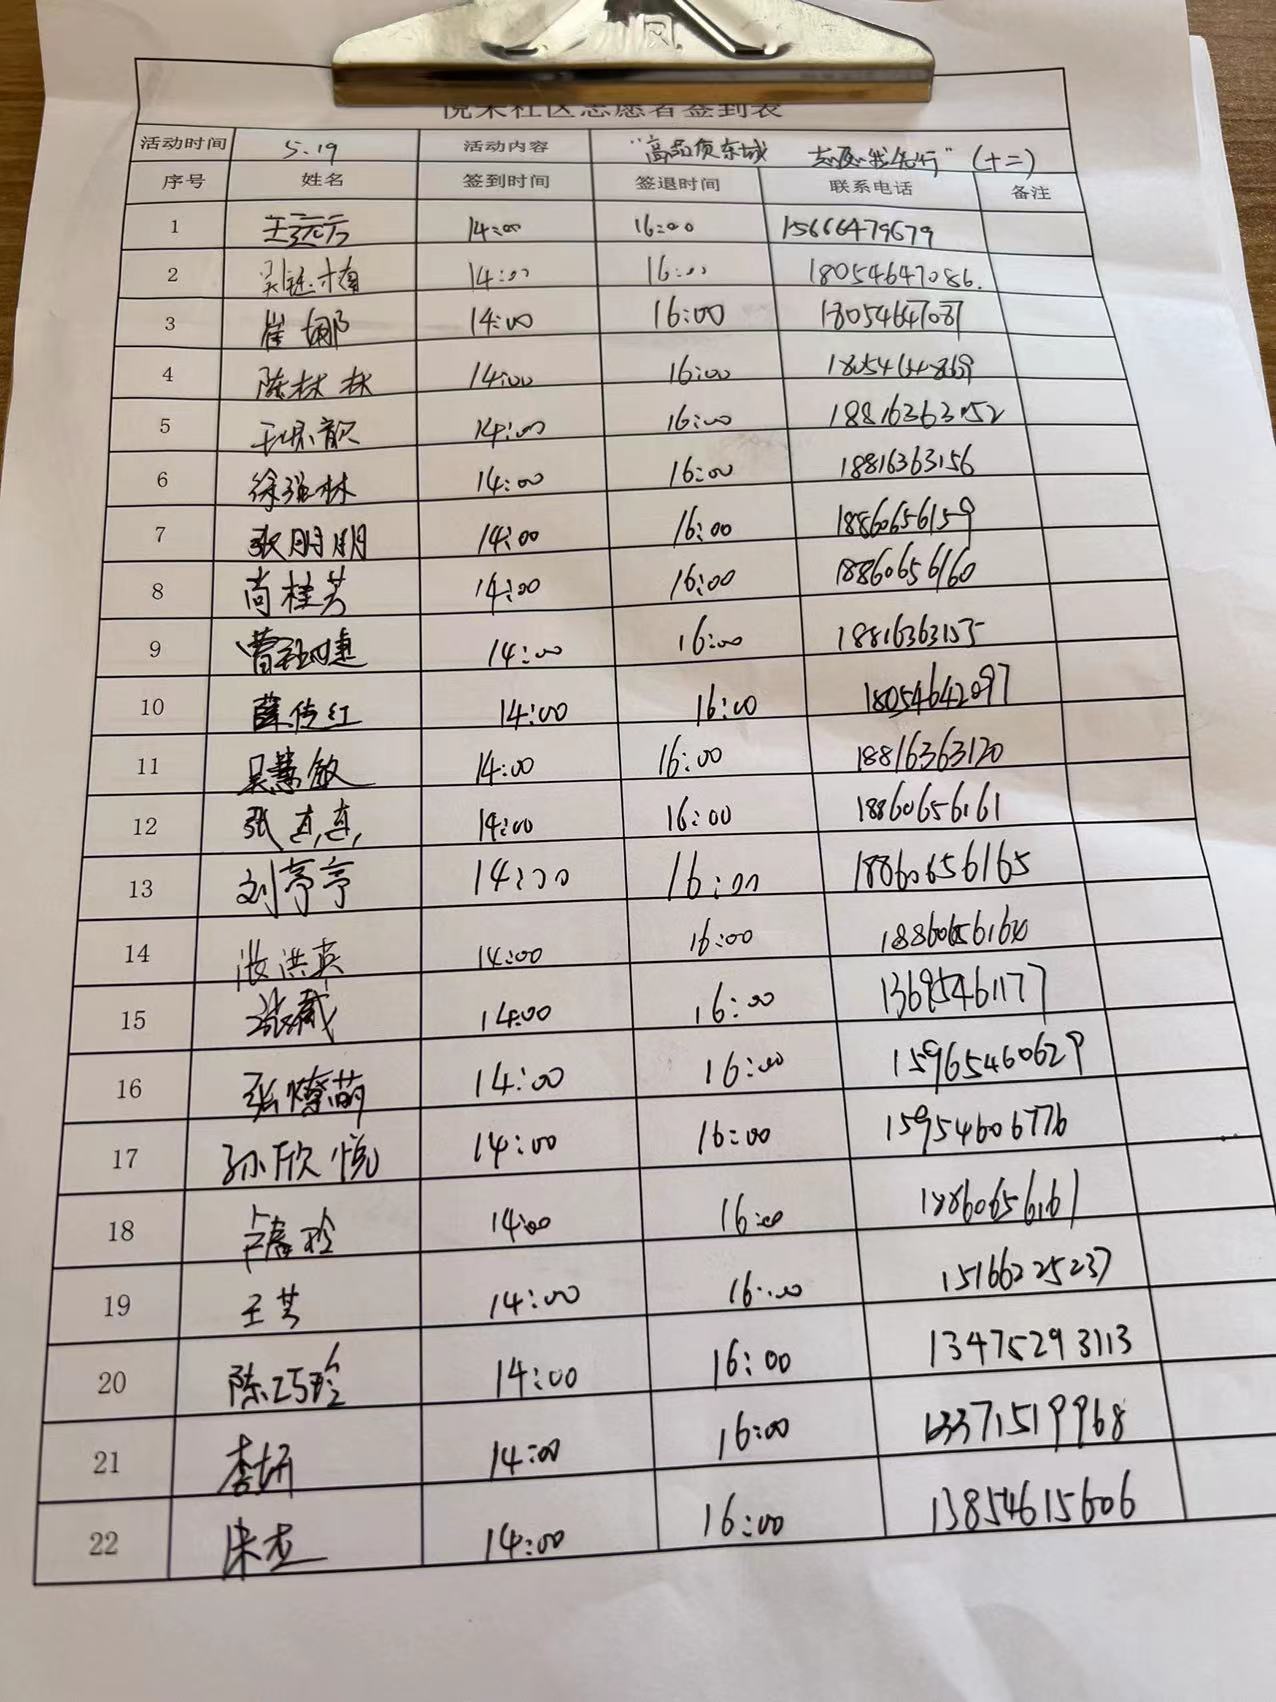 悦来社区志愿者签到表
活动时间 5.19 活动内容 "高品质东城 志愿我先行"(十二)
序号 姓名 签到时间 签退时间 联系电话 备注
1 王远方 14:00 16:00 15666479679
2 14:00 16:00 18054647086.
3 崔娜 14:00 16:00 18054647087
4 陈林林 14:00 16:00
5 14:00 16:00 18816363152
6 徐强林 14:00 16:00 18816363156
7 张明明 14:00 16:00 18860656159
8 尚桂芳 14:00 16:00 18860656160
9 14:00 16:00 18816363155
10 薛传红 14:00 16:00 18054642097
11 吴慧敏 14:00 16:00 18816363120
12 张真真 14:00 16:00 18860656161
13 刘亭亭 14:00 16:00 18860656165
14 洪英 14:00 16:00
15 14:00 16:00 13695461177
16 张燎萌 14:00 16:00 15965460629
17 孙欣悦 14:00 16:00 15954606776
18 卢春玲 14:00 16:00 18860656161
19 王芳 14:00 16:00 15166225237
20 陈巧玲 14:00 16:00 13475293113
21 李妍 14:00 16:00 13371519968
22 宋杰 14:00 16:00 13854615606